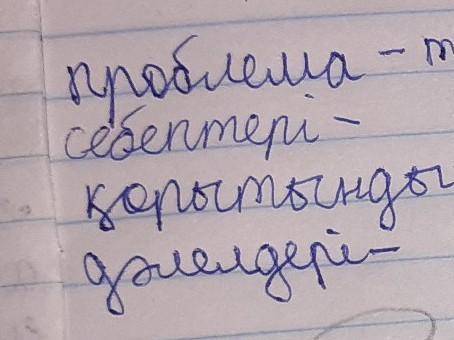 проблема - т
себептері -
қорытынды
дәлелдері -